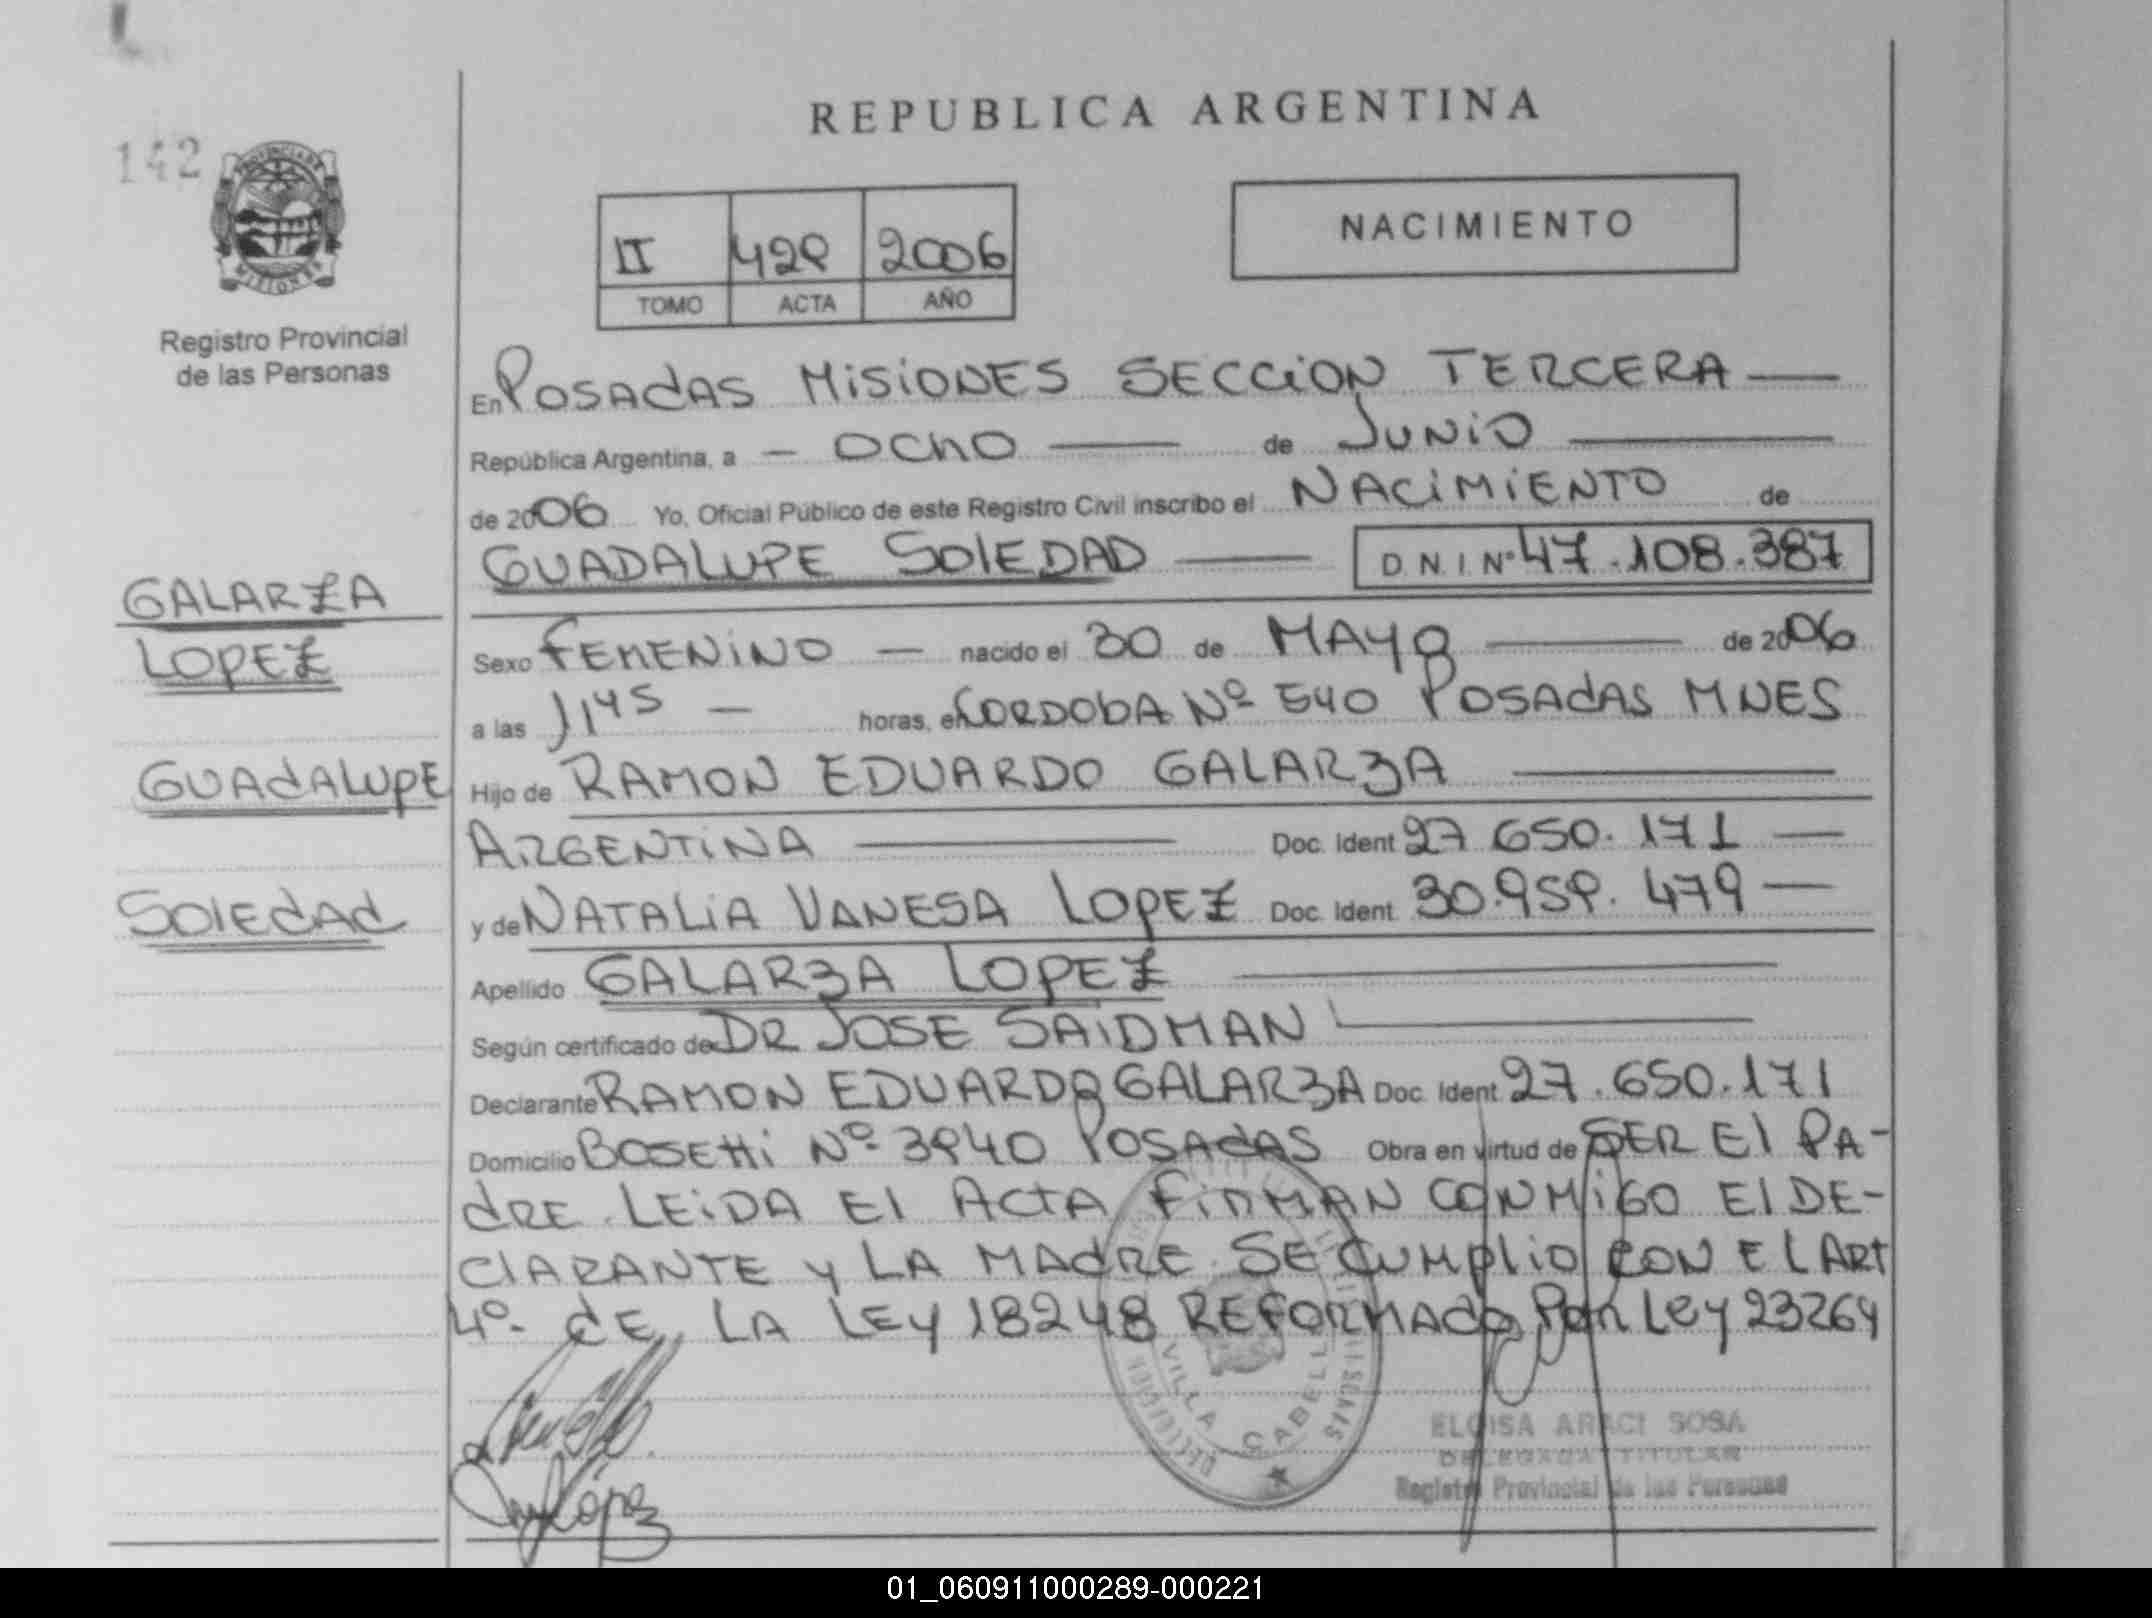 REPUBLICA ARGENTINA
142
NACIMIENTO
II 429 2006
TOMO ACTA AÑO
Registro Provincial
de las Personas
En POSADAS MISIONES SECCION TERCERA
República Argentina, a - OCHO de JUNIO
de 2006 Yo, Oficial Público de este Registro Civil inscribo el NACIMIENTO de
GUADALUPE SOLEDAD D.N.I. Nº 47.108.387
GALARZA
LOPEZ
GUADALUPE
SOLEDAD
Sexo FEMENINO - nacido el 30 de MAYO de 2006
a las 1145 - horas, en CORDOBA Nº 540 POSADAS MNES
Hijo de RAMON EDUARDO GALARZA
ARGENTINA Doc. Ident 27 650.171
y de NATALIA VANESA LOPEZ Doc. Ident. 30.959.479
Apellido GALARZA LOPEZ
Según certificado de DR JOSE SAIDMAN
Declarante RAMON EDUARDO GALARZA Doc. Ident 27.650.171
Domicilio BOSETTI Nº 3940 POSADAS Obra en virtud de SER El PA-
DRE. LEIDA El ACTA FIRMAN CONMIGO El DE-
CLARANTE y LA MADRE. SE CUMPLIO CON EL ART
4º. DE LA LEY 18248 REFORMADO POR LEY 23264
VILLA CABELL
MISIONES
López
ELOISA ARACI SOSA
DELEGADA TITULAR
Registro Provincial de las Personas
01_060911000289-000221